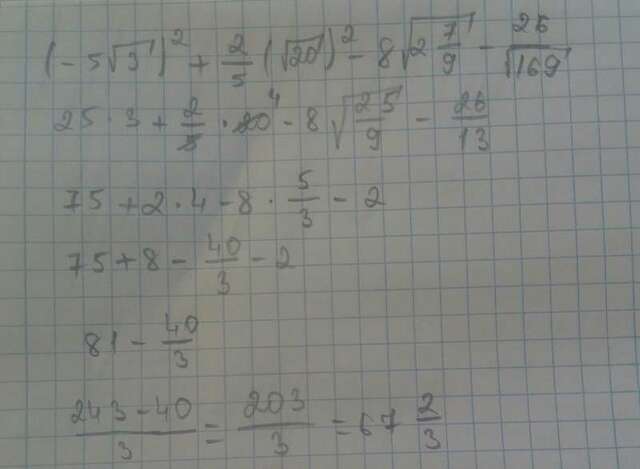 (-5√3)² + 2/5 (√20)² - 8√(2 7/9) - 26/√169
25·3 + 2/5 · 20 4 - 8√(25/9) - 26/13
75 + 2·4 - 8 · 5/3 - 2
75 + 8 - 40/3 - 2
81 - 40/3
(243 - 40)/3 = 203/3 = 67 2/3